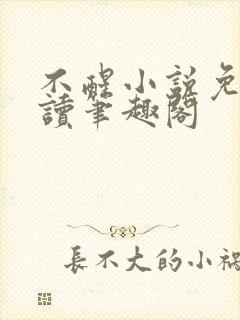 不醒小説免
讀筆趣閣
長不大的小禍